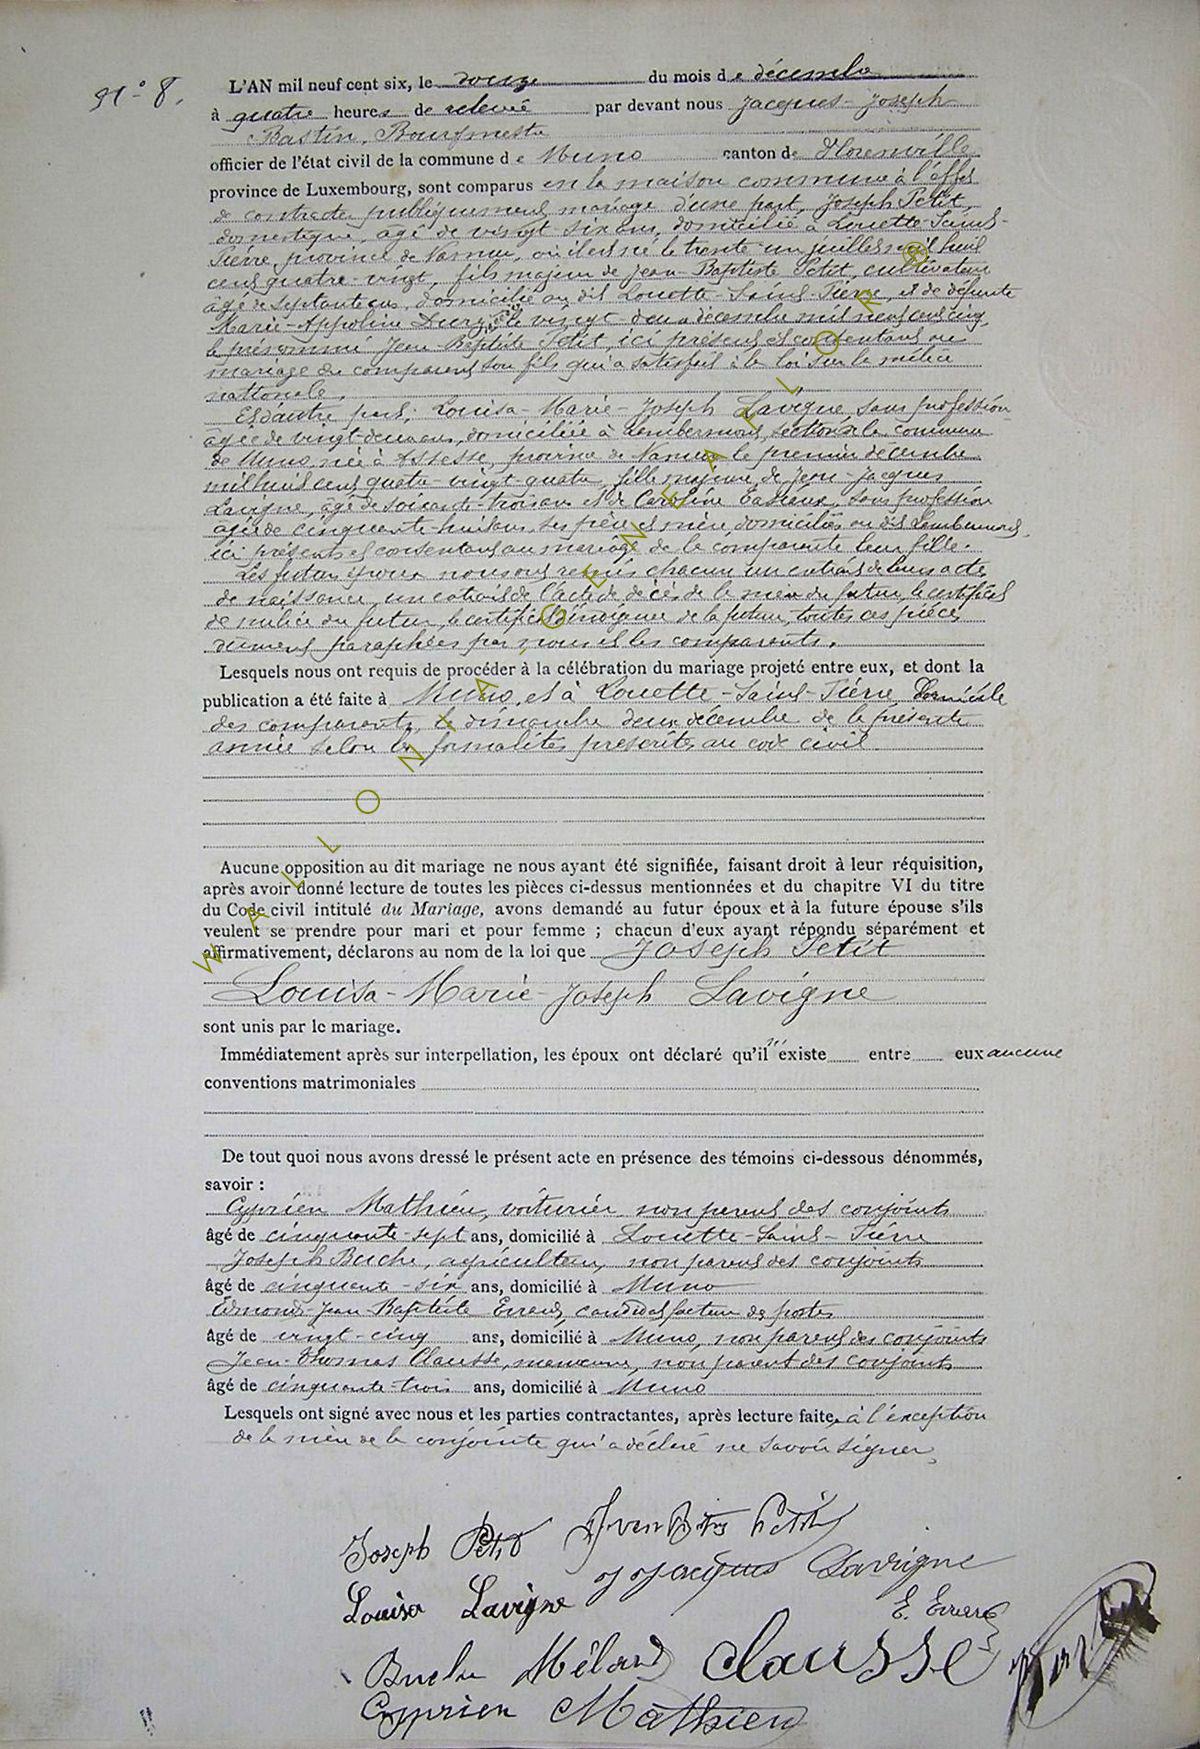 N° 8.
L'AN mil neuf cent six, le douze du mois de décembre
à quatre heures de relevée par devant nous Jacques-Joseph
Bastin, Bourgmestre
officier de l'état civil de la commune de Muno canton de Florenville
province de Luxembourg, sont comparus en la maison commune à l'effet
de contracter publiquement mariage d'une part, Joseph Petit,
domestique, âgé de vingt-six ans, domicilié à Louette-Saint-
Pierre, province de Namur, où il est né le trente-un juillet mil huit
cent quatre-vingt, fils majeur de Jean-Baptiste Petit, cultivateur
âgé de septante ans, domicilié au dit Louette-Saint-Pierre, et de défunte
Marie-Appoline le vingt-deux décembre mil neuf cent cinq,
le présommé Jean-Baptiste Petit, ici présent et consentant au
mariage du comparant son fils qui a satisfait à la loi sur la milice
nationale.
Et d'autre part, Louisa-Marie-Joseph Lavigne, sans profession
âgée de vingt-deux ans, domiciliée à Lambermont, section de la commune
de Muno, née à Assesse, province de Namur le premier décembre
mil huit cent quatre-vingt-quatre, fille majeure de Jean-Jacques
Lavigne, âgé de soixante-trois ans et de Caroline sans profession
âgée de cinquante-huit ans, ses père et mère domiciliés au dit Lambermont,
ici présents et consentant au mariage de la comparante leur fille.
Les futurs époux nous ont remis chacun un extrait de leurs actes
de naissance, un extrait de l'acte de décès de la mère du futur, le certificat
de milice du futur, le certificat de la future, toutes ces pièces
dûment paraphées par nous et les comparants.
Lesquels nous ont requis de procéder à la célébration du mariage projeté entre eux, et dont la
publication a été faite à Muno, et à Louette-Saint-Pierre, domicile
des comparants, le dimanche deux décembre de la présente
année selon les formalités prescrites au code civil
Aucune opposition au dit mariage ne nous ayant été signifiée, faisant droit à leur réquisition,
après avoir donné lecture de toutes les pièces ci-dessus mentionnées et du chapitre VI du titre
du Code civil intitulé du Mariage, avons demandé au futur époux et à la future épouse s'ils
veulent se prendre pour mari et pour femme ; chacun d'eux ayant répondu séparément et
affirmativement, déclarons au nom de la loi que Joseph Petit
Louisa-Marie-Joseph Lavigne
sont unis par le mariage.
Immédiatement après sur interpellation, les époux ont déclaré qu'il n'existe entre eux aucune
conventions matrimoniales
De tout quoi nous avons dressé le présent acte en présence des témoins ci-dessous dénommés,
savoir :
Cyprien Mathieu, voiturier, non parent des conjoints
âgé de cinquante-sept ans, domicilié à Louette-Saint-Pierre
Joseph Buche, agriculteur, non parent des conjoints
âgé de cinquante-six ans, domicilié à Muno
Edmond-Jean-Baptiste Errens, candidat facteur des postes
âgé de vingt-cinq ans, domicilié à Muno, non parent des conjoints
Jean-Thomas Clausse, non parent des conjoints
âgé de cinquante-trois ans, domicilié à Muno
Lesquels ont signé avec nous et les parties contractantes, après lecture faite, à l'exception
de la mère de la conjointe qui a déclaré ne savoir signer.
Joseph Petit Jean Btes Petit
J Jacques Lavigne
Louisa Lavigne E. Errens
Buche Clausse
Cyprien Mathieu
WALLONIA GENEALOR ®